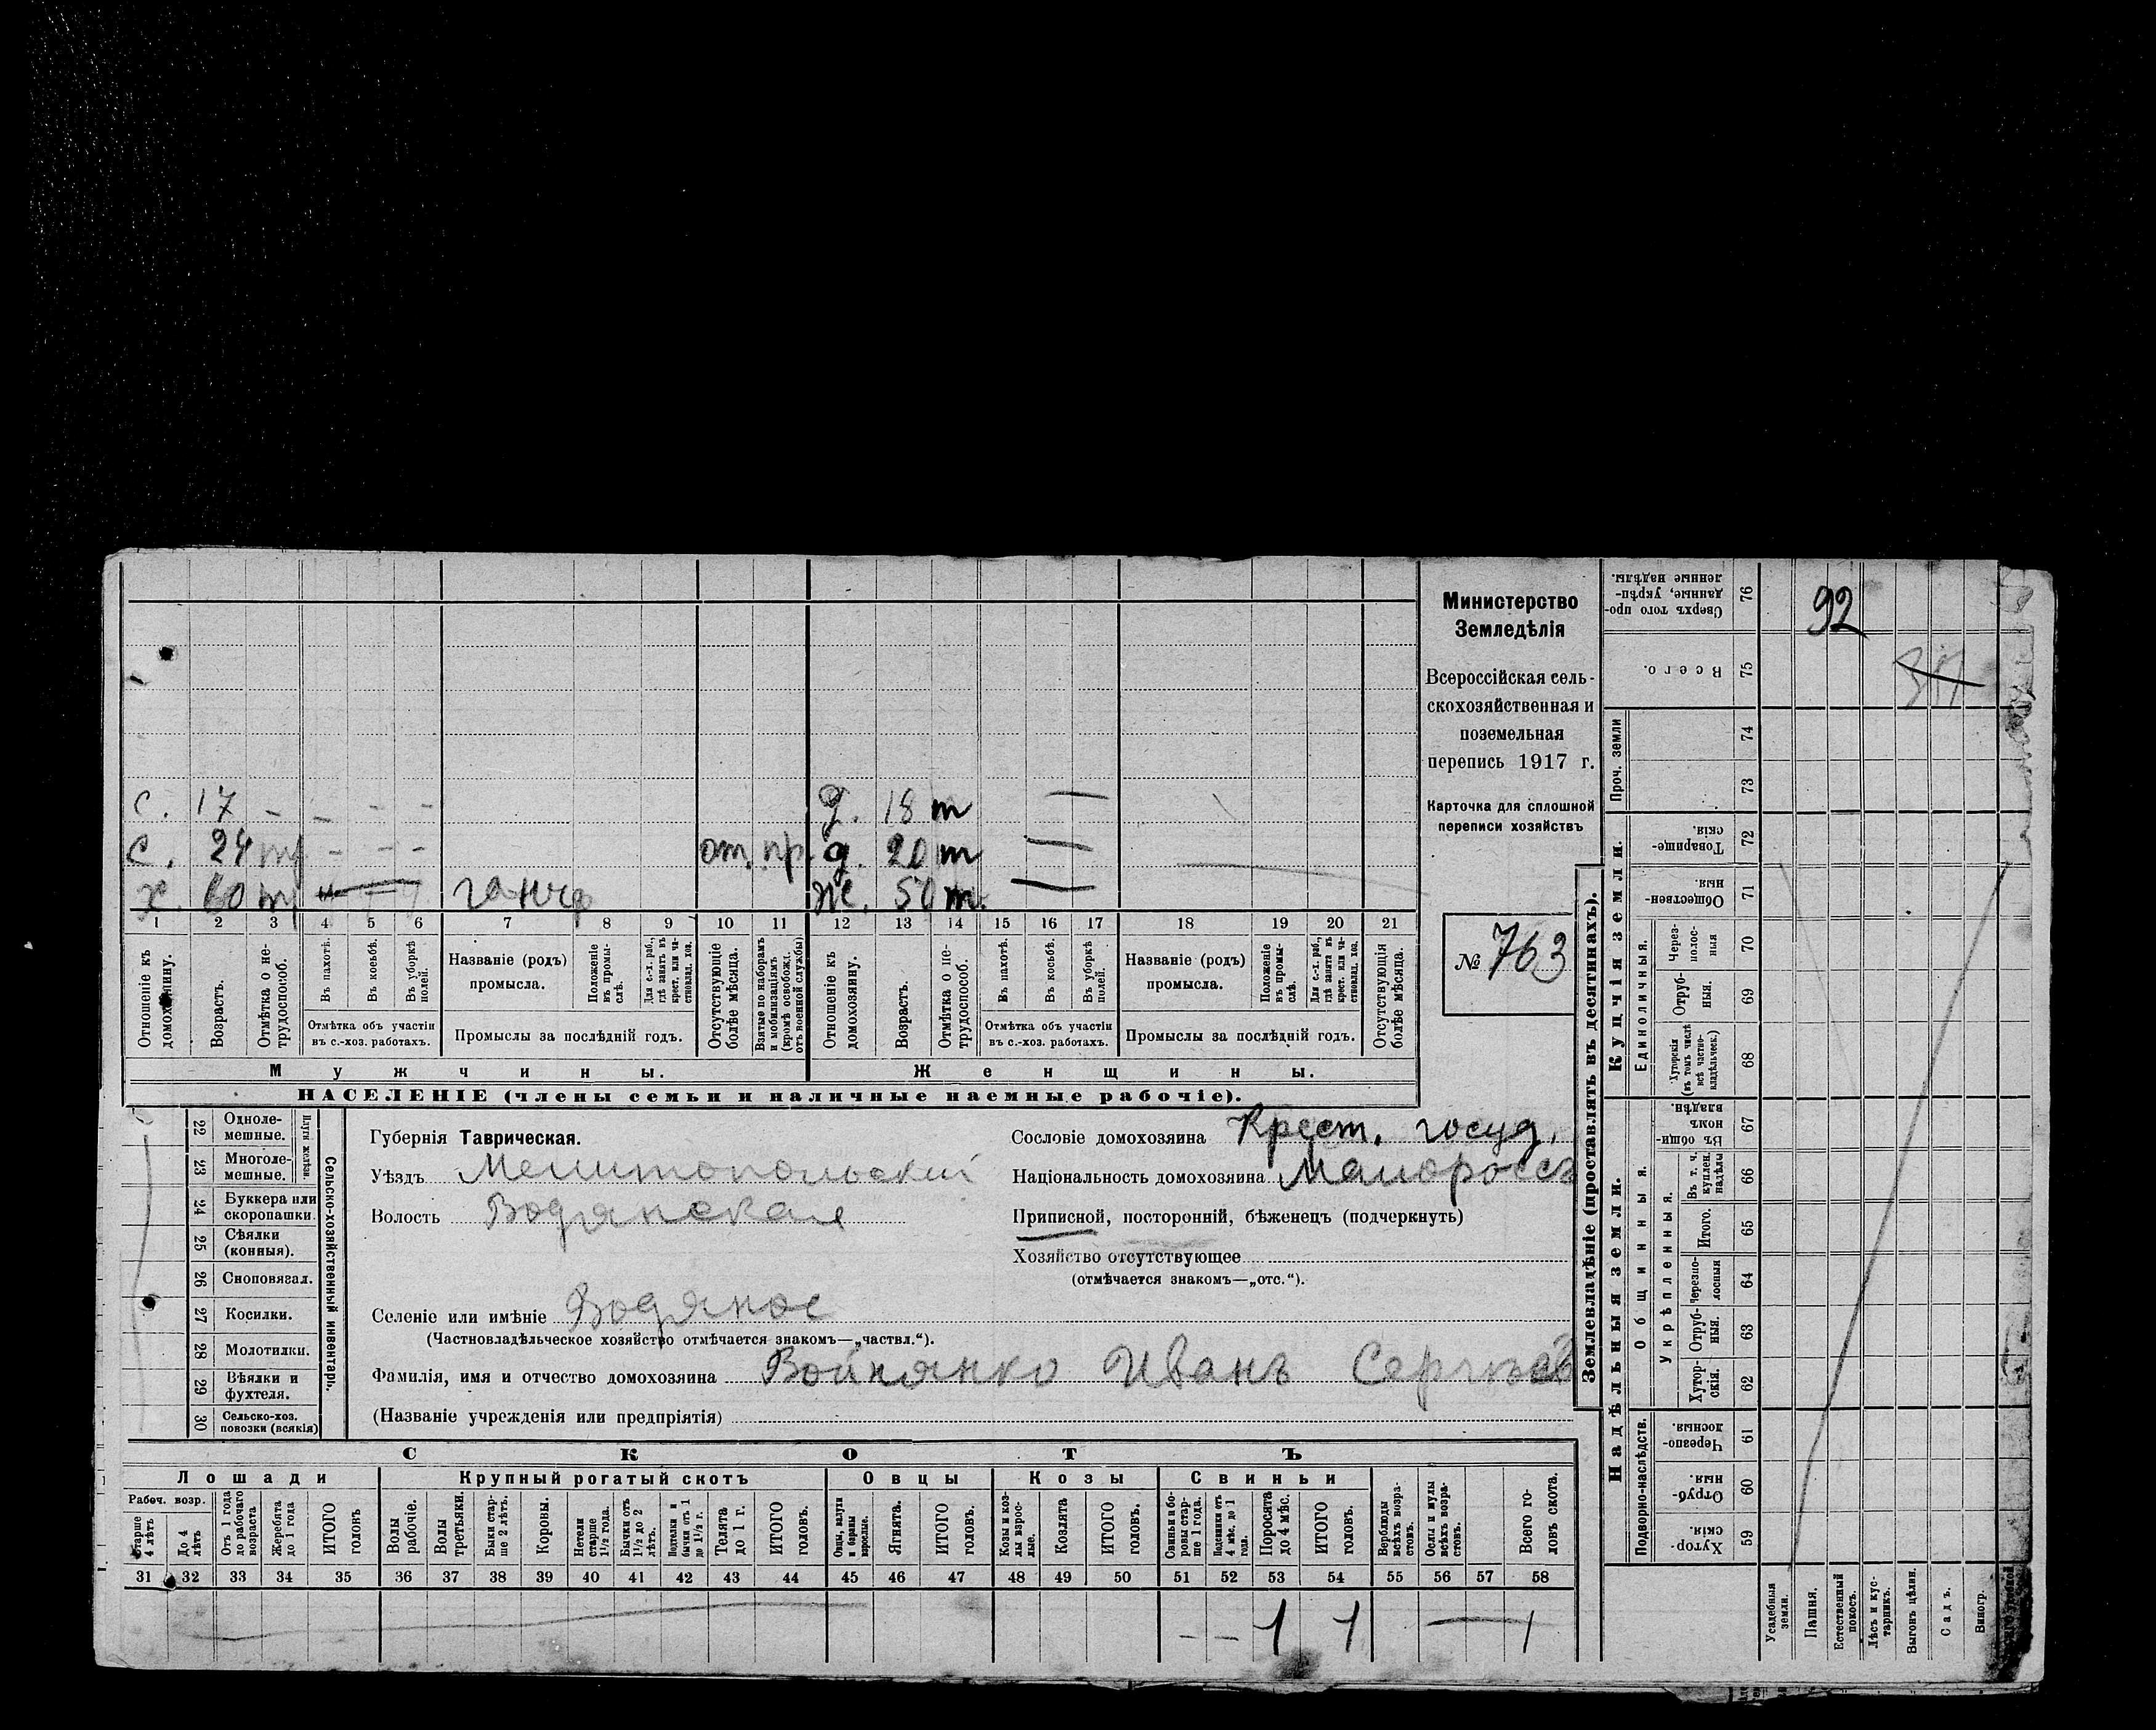 с. 17 - - - - д. 18 т
с. 24 - - - от. пр. д. 20 т
х. 60 ж. 50 т.
1 2 3 4 5 6 7 8 9 10 11 12 13 14 15 16 17 18 19 20 21
Отношеніе къ домохозяину.
Возрастъ.
Отмѣтка о не-трудоспособ.
Въ пахотѣ.
Въ косьбѣ.
Въ уборкѣ полей.
Отмѣтка объ участіи
въ с.-хоз. работахъ.
Названіе (родъ)
промысла.
Положеніе въ промы-слѣ.
Для с.-х. раб., гдѣ занятъ въ крест. или ча-ствовлад. хоз.
Промыслы за послѣдній годъ.
Отсутствующіе болѣе мѣсяца.
Взятые по наборамъ и мобилизаціямъ (кромѣ освобожд. отъ военной службы)
Отношеніе къ домохозяину.
Возрастъ.
Отмѣтка о не-трудоспособ.
Въ пахотѣ.
Въ косьбѣ.
Въ уборкѣ полей.
Отмѣтка объ участіи
въ с.-хоз. работахъ.
Названіе (родъ)
промысла.
Положеніе въ промы-слѣ.
Для с.-х. раб., гдѣ занята въ крест. или ча-ствовлад. хоз.
Промыслы за послѣдній годъ.
Отсутствующія болѣе мѣсяца.
Мужчины. Женщины.
НАСЕЛЕНІЕ (члены семьи и наличные наемные рабочіе).
Министерство
Земледѣлія
Всероссійская сель-
скохозяйственная и
поземельная
перепись 1917 г.
Карточка для сплошной
переписи хозяйствъ
№ 763
Сельско-хозяйственный инвентарь.
Плуги желѣзн.
22 Одноле-
мешные.
23 Многоле-
мешные.
24 Буккера или
скоропашки.
25 Сѣялки
(конныя).
26 Сноповязал.
27 Косилки.
28 Молотилки.
29 Вѣялки и
фухтеля.
30 Сельско-хоз.
повозки (всякія)
Губернія Таврическая.
Уѣздъ Мелитопольскій
Волость Водянская
Селеніе или имѣніе Водяное
(Частновладѣльческое хозяйство отмѣчается знакомъ—„частвл.“).
Фамилія, имя и отчество домохозяина Иванъ Сергѣев
(Названіе учрежденія или предпріятія)
Сословіе домохозяина Крест. госуд.
Національность домохозяина Малороссъ
Приписной, посторонній, бѣженецъ (подчеркнуть)
Хозяйство отсутствующее
(отмѣчается знакомъ—„отс.“).
СКОТЪ
Лошади Крупный рогатый скотъ Овцы Козы Свиньи
Рабоч. возр.
Старше 4 лѣтъ
До 4 лѣтъ
Отъ 1 года до рабочаго возраста
Жеребята до 1 года
ИТОГО головъ
Волы рабочіе.
Волы третьяки.
Быки стар-ше 2 лѣтъ.
Коровы.
Нетели старше 1½ года.
Бычки отъ 1½ до 2 лѣтъ.
Подтелки и бычки отъ 1 до 1½ г.
Телята до 1 г.
ИТОГО головъ.
Овцы, валухи и бараны взрослые.
Ягнята.
ИТОГО головъ.
Козы и коз-лы взрос-лые.
Козлята
ИТОГО головъ.
Свиньи и бо-ровы стар-ше 1 года.
Подсвинки отъ 4 мѣс. до 1 года.
Поросята до 4 мѣс.
ИТОГО головъ.
Верблюды всѣхъ возра-стовъ.
Ослы и мулы всѣхъ возра-стовъ.
Всего го-ловъ скота.
31 32 33 34 35 36 37 38 39 40 41 42 43 44 45 46 47 48 49 50 51 52 53 54 55 56 57 58
— — 1 1 — 1
Землевладѣніе (проставлять въ десятинахъ).
Надѣльныя земли. Купчія земли. Проч. земли
Подворно-наслѣдств. Общинныя. Единоличныя.
Укрѣпленныя.
59 Хутор-скія.
60 Отруб-ныя.
61 Черезпо-лосныя.
62 Хутор-скія.
63 Отруб-ныя.
64 Черезпо-лосныя
65 Итого.
66 Въ т. ч. куплен. надѣлы
67 Въ общин-номъ владѣн.
68 Хуторскія (въ томъ числѣ всѣ частно-владѣльческ.)
69 Отруб-ныя.
70 Через-полос-ныя
71 Обществен-ныя
72 Товарище-скія.
73
74
75 Всего.
76 Сверхъ того про-данные, укрѣп-ленные надѣлы.
92
Усадебныя земли.
Пашня.
Естественный покосъ.
Лѣсъ и кус-тарникъ.
Выгонъ цѣлин.
Садъ.
Виногр.